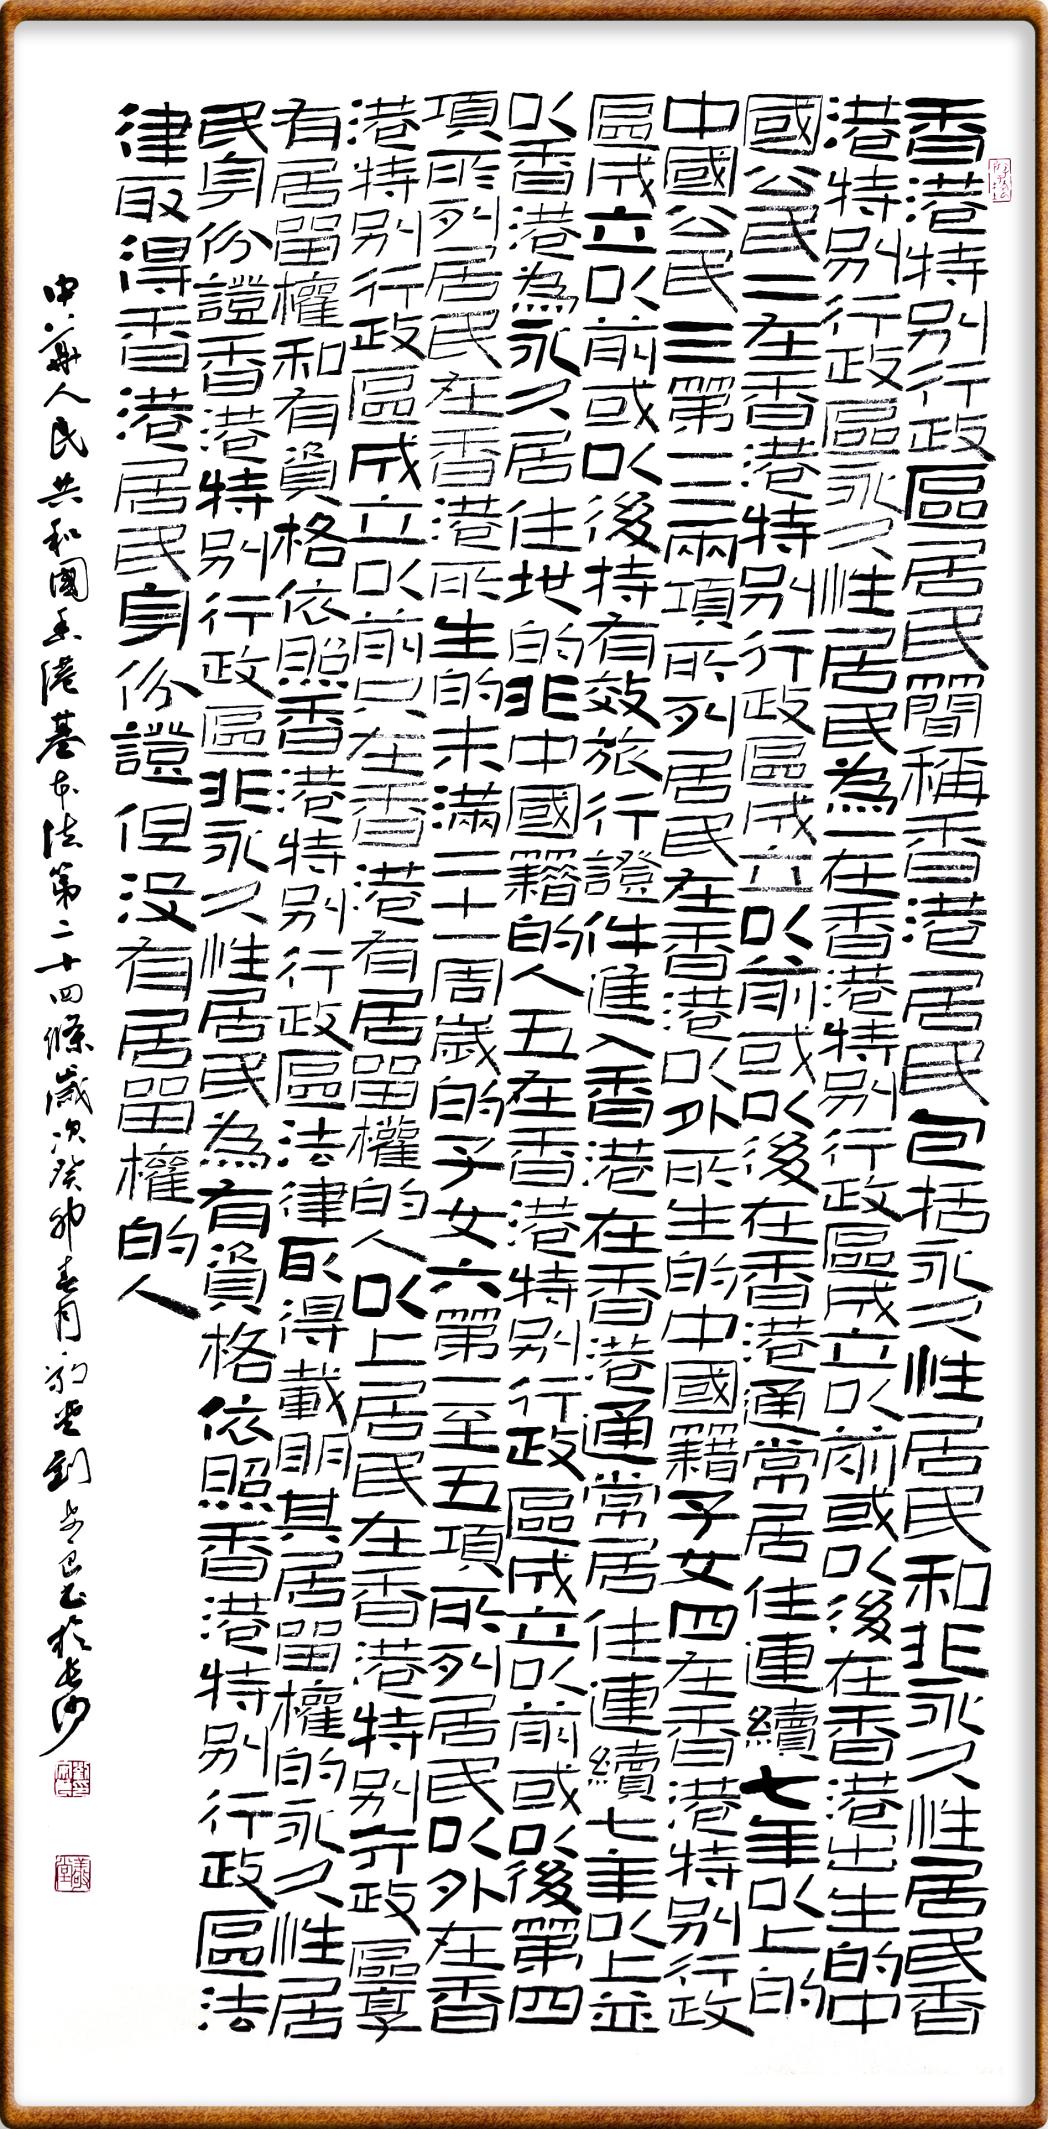 香港特别行政區居民簡稱香港居民包括永久性居民和非永久性居民香
港特别行政區永久性居民為一在香港特别行政區成立以前或以後在香港出生的中
國公民二在香港特别行政區成立以前或以後在香港通常居住連續七年以上的
中國公民三第一二兩項所列居民在香港以外所生的中國籍子女四在香港特别行政
區成立以前或以後持有效旅行證件進入香港在香港通常居住連續七年以上並
以香港為永久居住地的非中國籍的人五在香港特别行政區成立以前或以後第四
項所列居民在香港所生的未滿二十一周歲的子女六第一至五項所列居民以外在香
港特别行政區成立以前只在香港有居留權的人以上居民在香港特别行政區享
有居留權和有資格依照香港特别行政區法律取得載明其居留權的永久性居
民身份證香港特别行政區非永久性居民為有資格依照香港特别行政區法
律取得香港居民身份證但没有居留權的人
中華人民共和國香港基本法第二十四條歲次癸卯春月劉於長沙